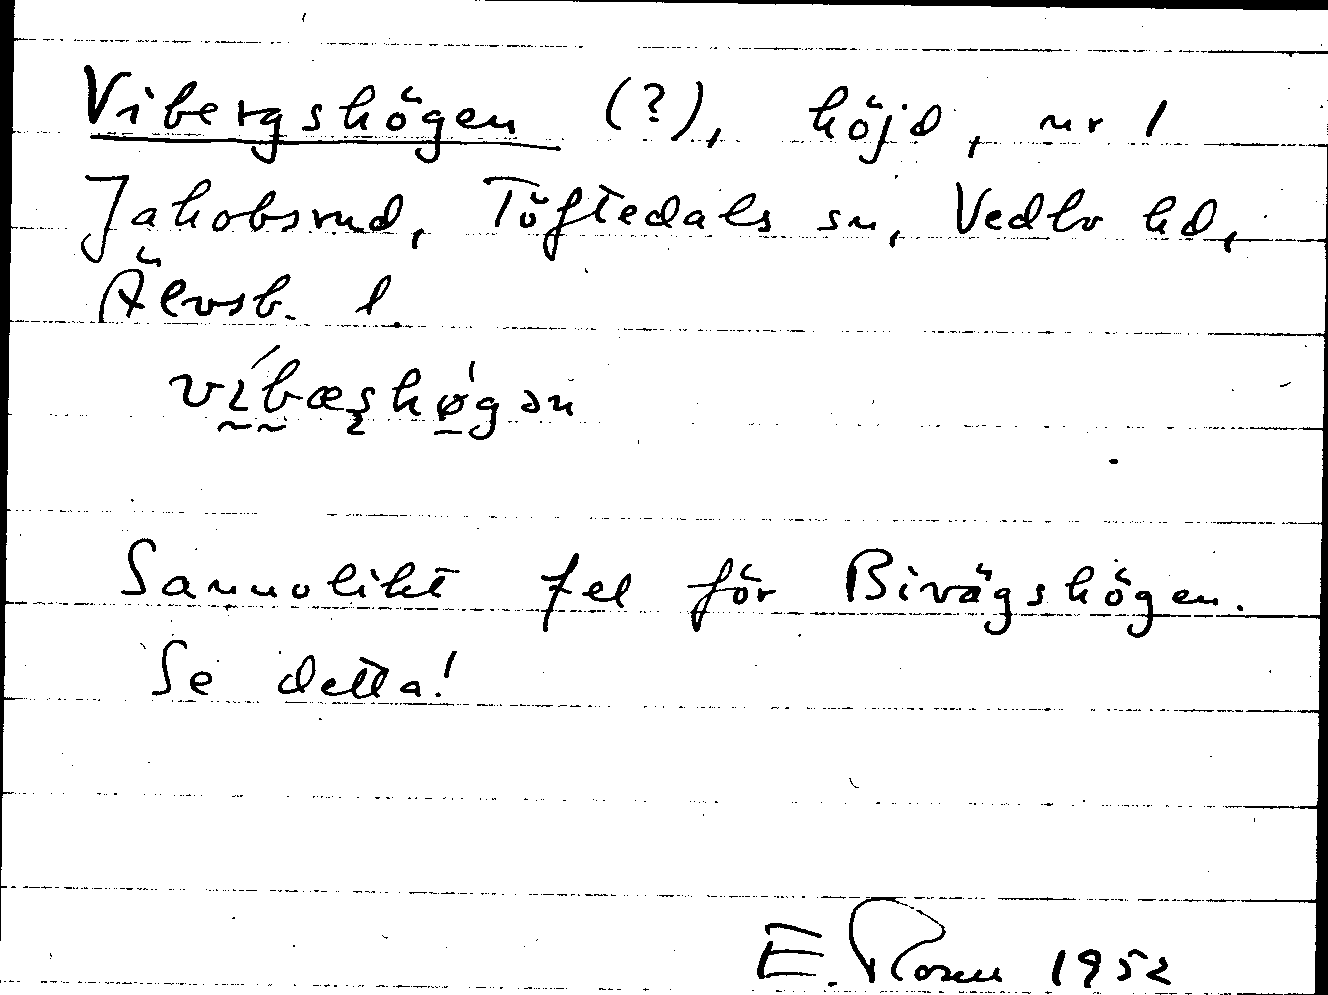 Vibergshögen (?), höjd, nr 1
Jakobsrud, Töftedals sn, Vedbo hd,
Älvsb. l.
víbæʂhø̀gən
Sannolikt fel för Bivägshögen.
Se detta!
E. Rosen 1952